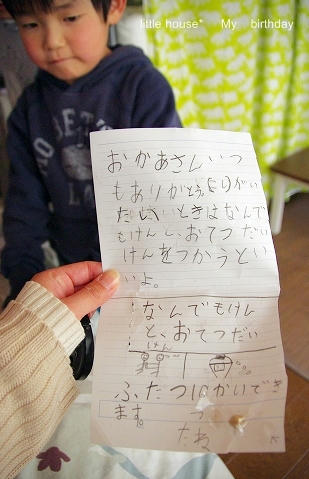 little house* My birthday
おかあさんいつ
もありがとう。てつだい
たい、ときはなんで
もけんと、おてつだい
けんをつかうとい
いよ。
なんでもけん
と、おてつだい
けん
ふたつ10かいでき
ます。